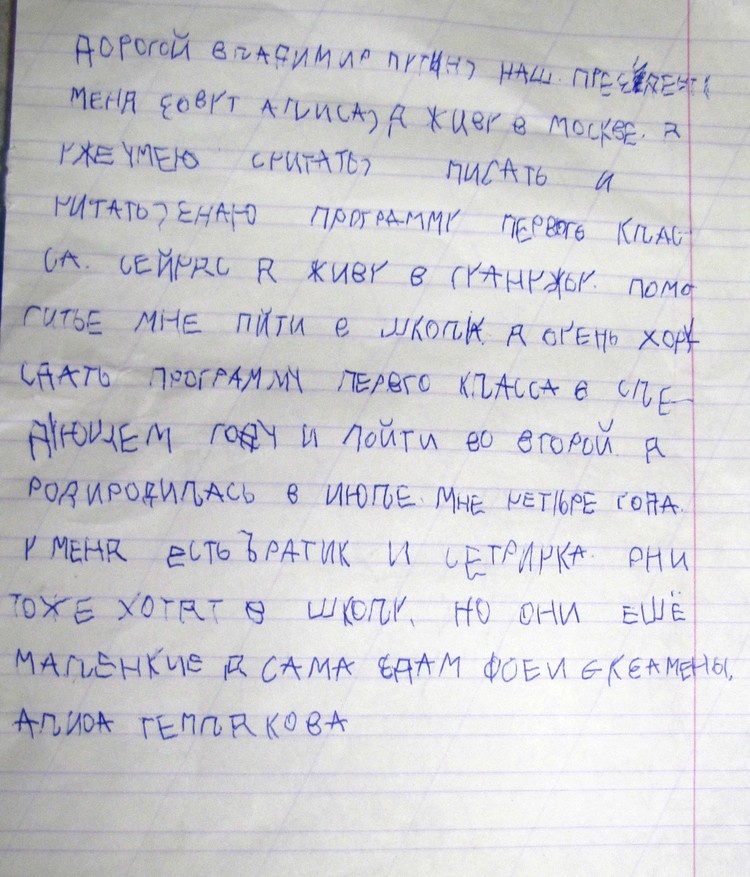 ДОРОГОЙ ВЛАДИМИР ПУТИН, НАШ ПРЕЗИДЕНТ!
МЕНЯ ЗОВУТ АЛИСА, Я ЖИВУ В МОСКВЕ. Я
УЖЕ УМЕЮ СЧИТАТЬ, ПИСАТЬ И
ЧИТАТЬ, ЗНАЮ ПРОГРАММУ ПЕРВОГО КЛАС
СА. СЕЙЧАС Я ЖИВУ В ГУАНЧЖУ. ПОМО
ГИТЬЕ МНЕ ПЙТИ В ШКОЛУ. Я ОЧЕНЬ ХОЧУ
СДАТЬ ПРОГРАММУ ПЕРВГО КЛАССА В СЛЕ-
ДУЮЩЕМ ГОДУ И ПОЙТИ ВО ВТОРОЙ. Я
РОДИРОДИЛАСЬ В ИЮЛЕ. МНЕ ЧЕТЫРЕ ГОДА.
У МЕНЯ ЕСТЬ БРАТИК И СЕТРИЧКА. ОНИ
ТОЖЕ ХОТЯТ В ШКОЛУ. НО ОНИ ЕЩЁ
МАЛЕНКИЕ Я САМА СДАМ ФОЕИ ЕКЗАМЕНЫ.
АЛИСА ТЕПЛЯКОВА